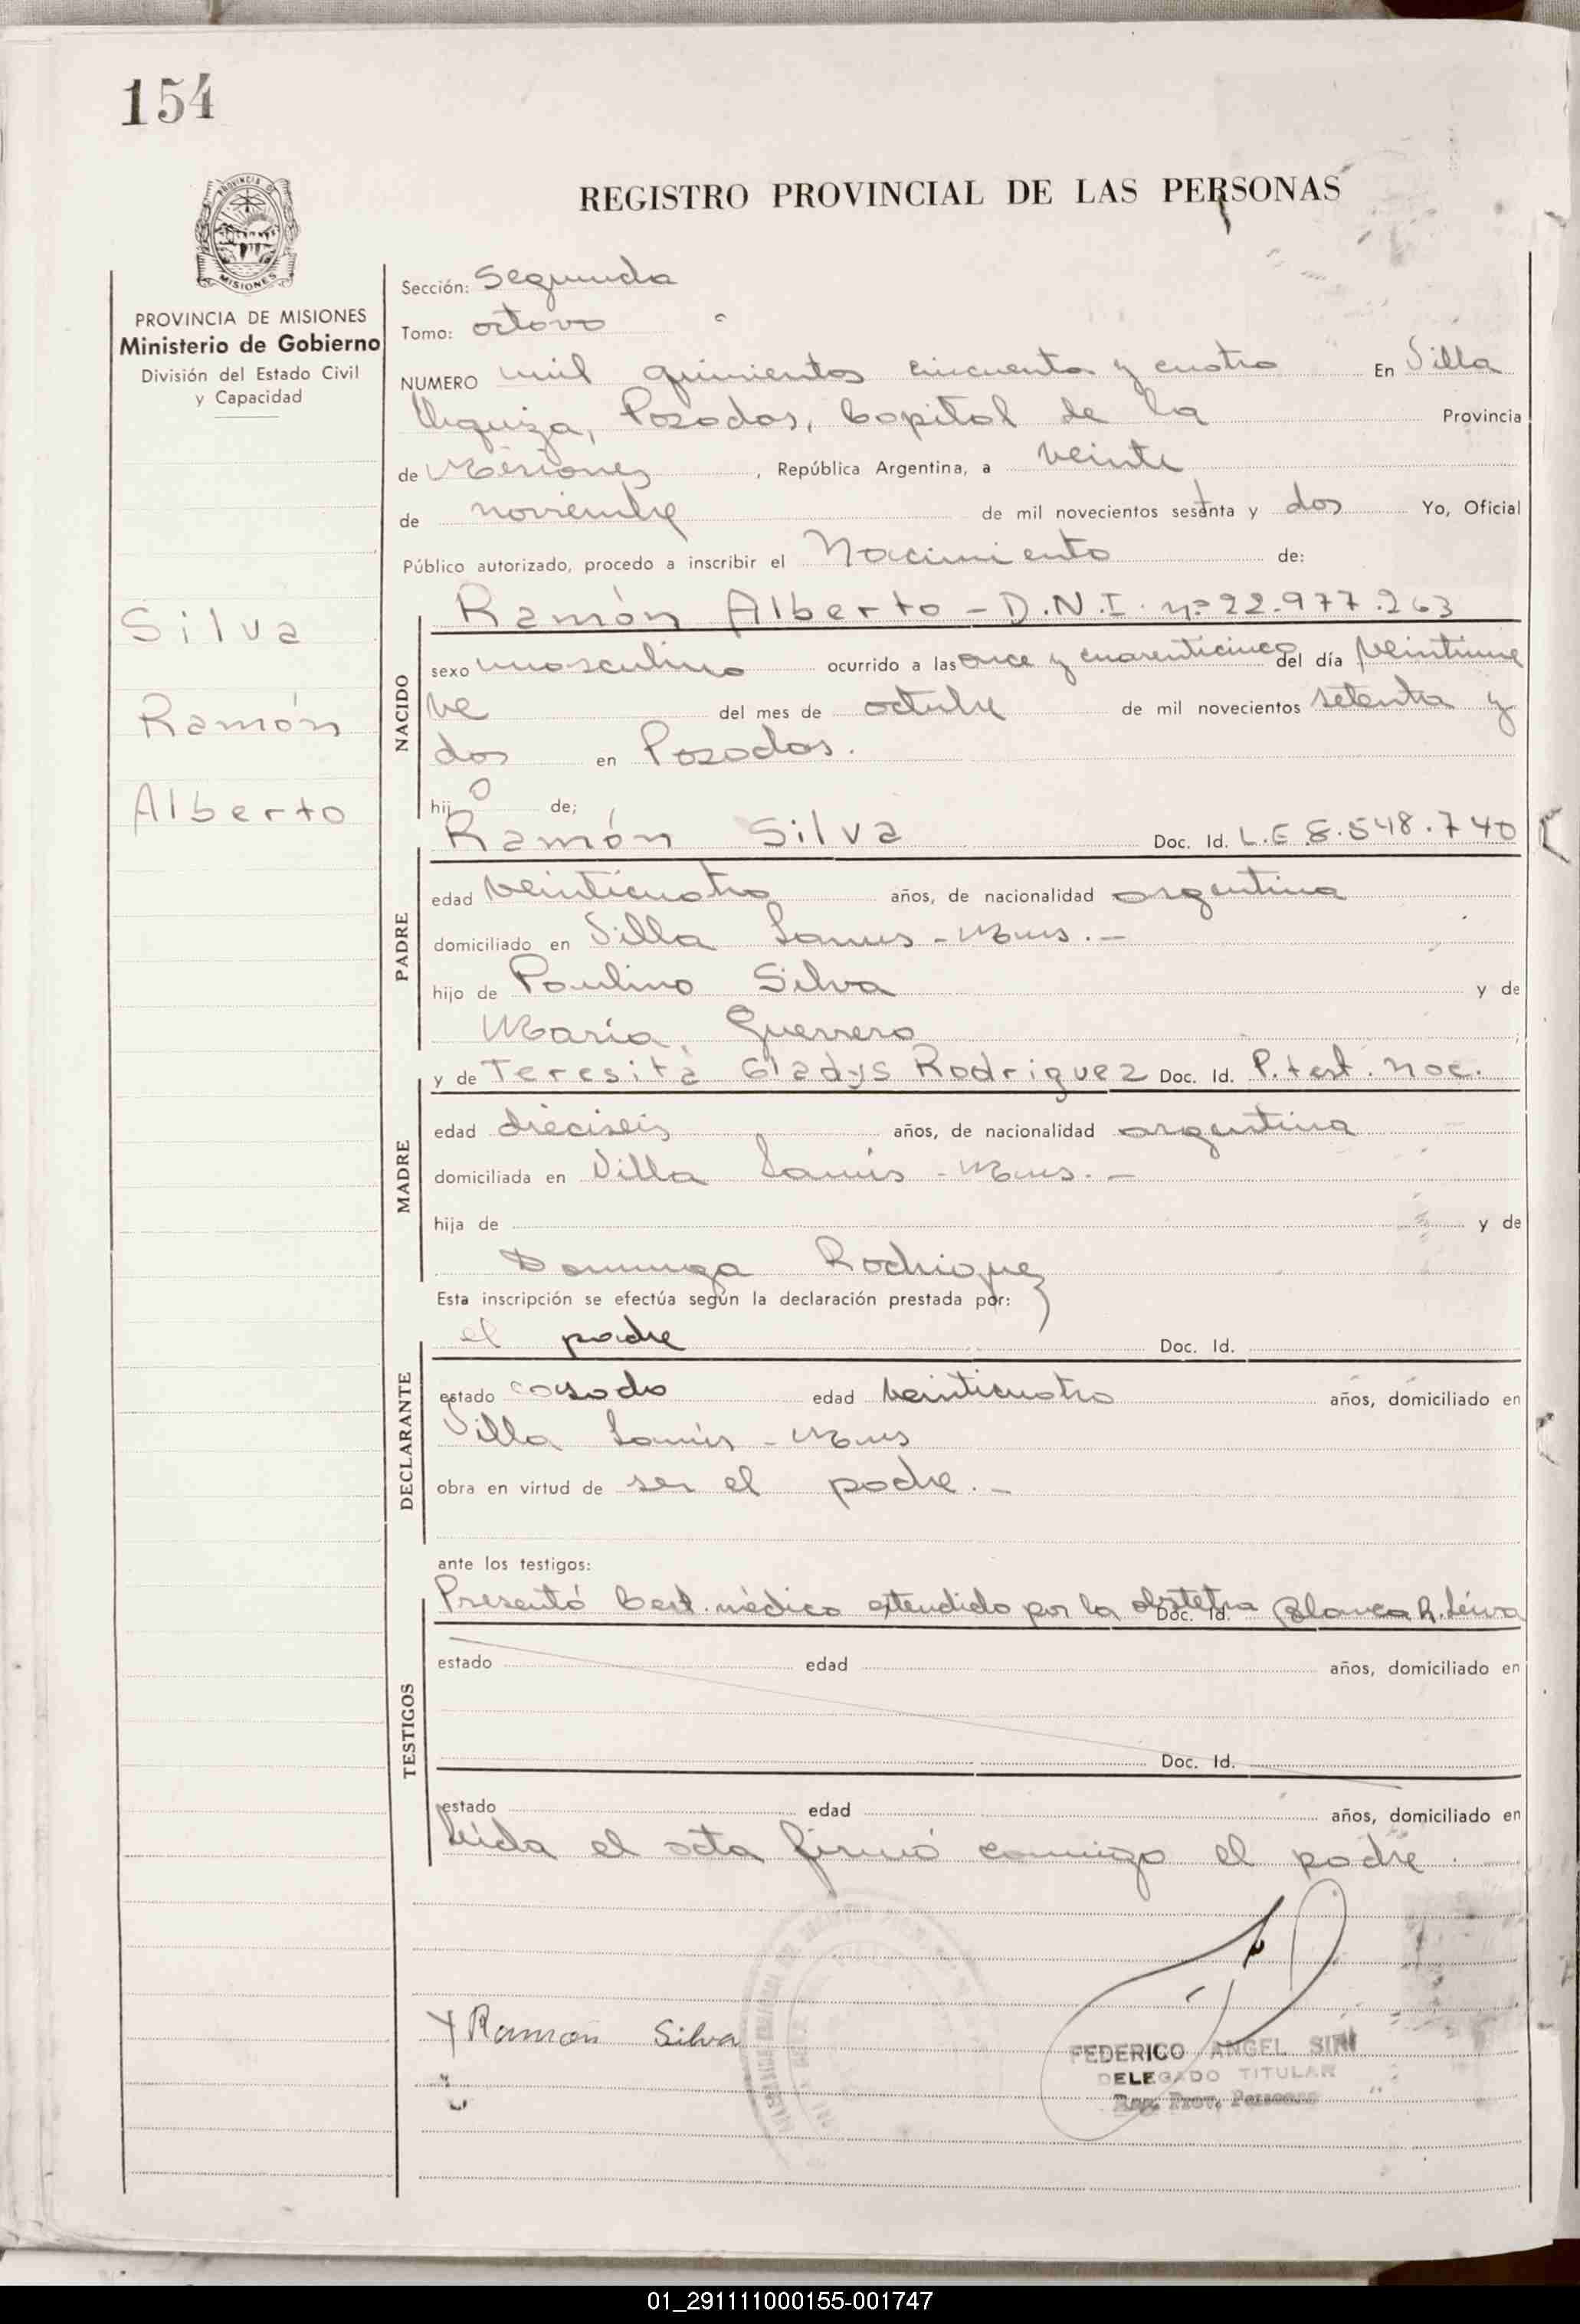 154
REGISTRO PROVINCIAL DE LAS PERSONAS
PROVINCIA DE MISIONES
MISIONES
PROVINCIA DE MISIONES
Ministerio de Gobierno
División del Estado Civil
y Capacidad
Silva
Ramón
Alberto
Sección: Segunda
Tomo: octavo
NUMERO mil quinientos cincuenta y cuatro En Villa
Urquiza, Posadas, Capital de la Provincia
de Misiones, República Argentina, a veinte
de noviembre de mil novecientos sesenta y dos Yo, Oficial
Público autorizado, procedo a inscribir el Nacimiento de:
NACIDO
Ramón Alberto - D.N.I. nº 22.977.263
sexo masculino ocurrido a las once y cuarenticinco del día veintinue
ve del mes de octubre de mil novecientos setenta y
dos en Posadas.
hijo de;
PADRE
Ramón Silva Doc. Id. L.E 8.548.740
edad veinticuatro años, de nacionalidad argentina
domiciliado en Villa Lanus - Mnes. -
hijo de Paulino Silva y de
María Guerrero
MADRE
y de Teresita Gladys Rodriguez Doc. Id. P. test. nac.
edad dieciseis años, de nacionalidad argentina
domiciliada en Villa Lanús - Mnes. -
hija de y de
Dominga Rodriguez
Esta inscripción se efectúa según la declaración prestada por:
DECLARANTE
el padre Doc. Id.
estado casado edad veinticuatro años, domiciliado en
Villa Lanús - Mnes
obra en virtud de ser el padre. -
ante los testigos:
TESTIGOS
Presentó Cert. médico extendido por la obstetra Doc. Id. Blanca R. Leiva
estado edad años, domiciliado en
Doc. Id.
estado edad años, domiciliado en
leída el acta firmó conmigo el padre.
Ramon Silva
FEDERICO ANGEL SIRI
DELEGADO TITULAR
Reg. Prov. Personas
01_291111000155-001747